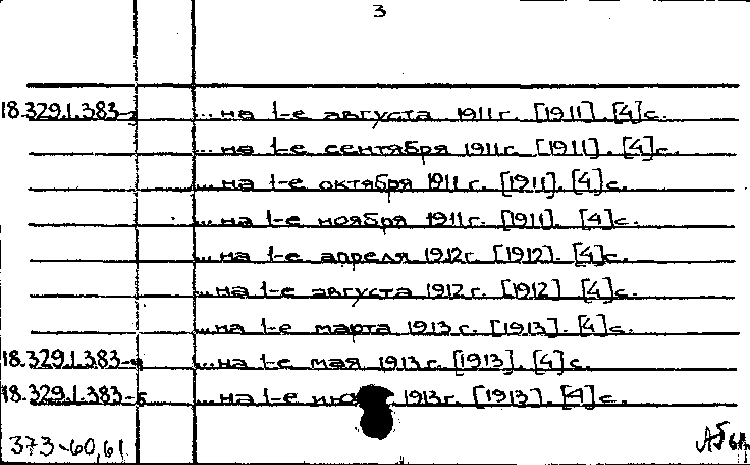 3
18.329.1.383-2 ...на 1-е августа 1911 г. [1911]. [4] с.
...на 1-е сентября 1911 г. [1911]. [4] с.
...на 1-е октября 1911 г. [1911]. [4] с.
...на 1-е ноября 1911 г. [1911]. [4] с.
...на 1-е апреля 1912 г. [1912]. [4] с.
...на 1-е августа 1912 г. [1912] [4] с.
...на 1-е марта 1913 г. [1913]. [4] с.
18.329.1.383-4 ...на 1-е мая 1913 г. [1913]. [4] с.
18.329.1.383-5 ...на 1-е 1913 г. [1913]. [4] с.
373-60,61